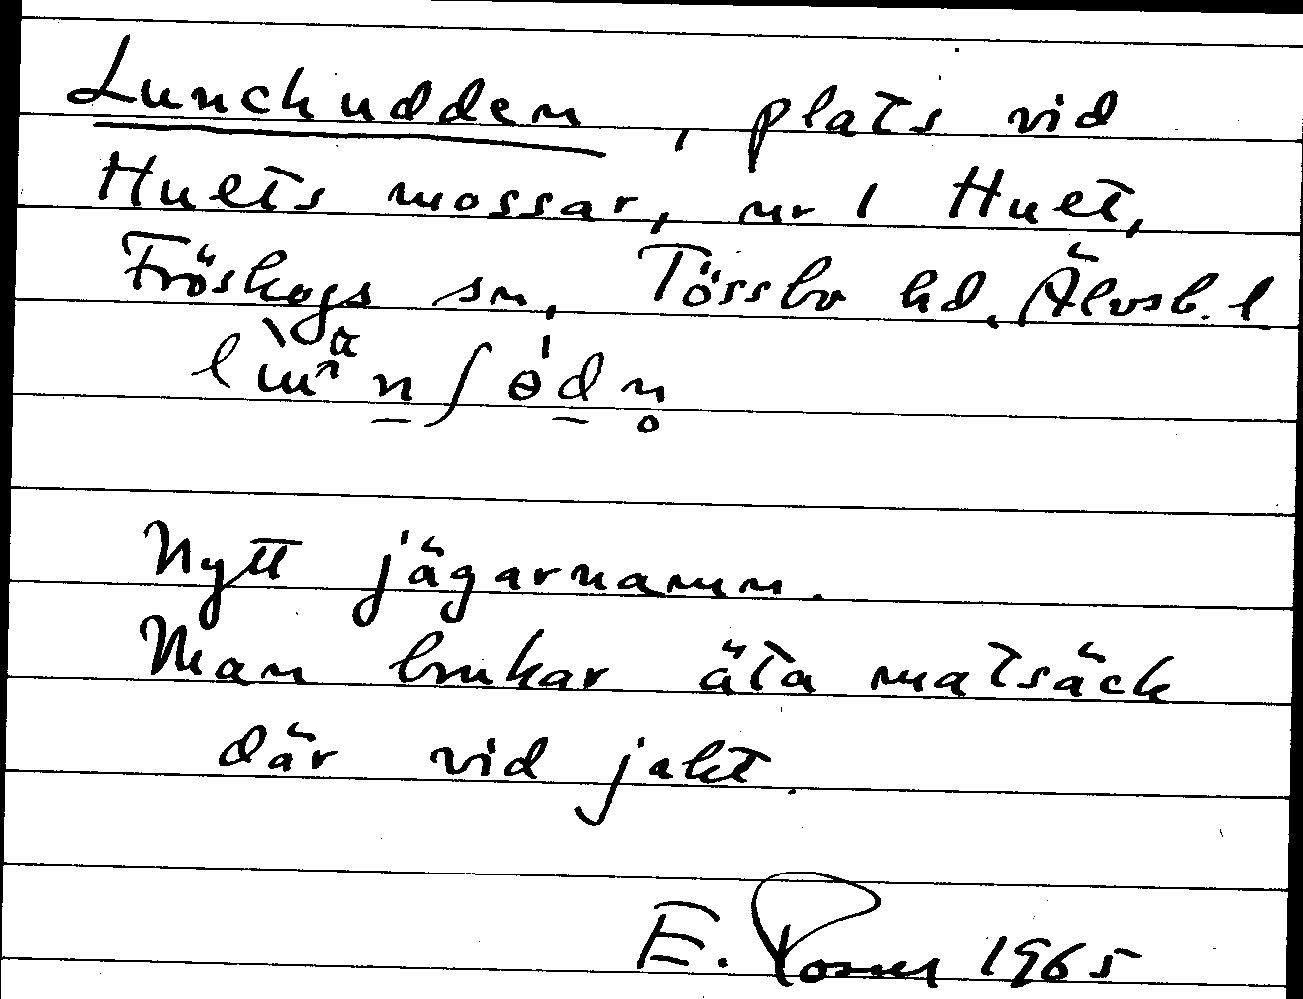 Lunchudden, plats vid
Huets mossar, nr 1 Huet,
Fröskogs sn, Tössbo hd, Älvsb. l
Nytt jägarnamn.
Man brukar äta matsäck
där vid jakt.
E. 1965